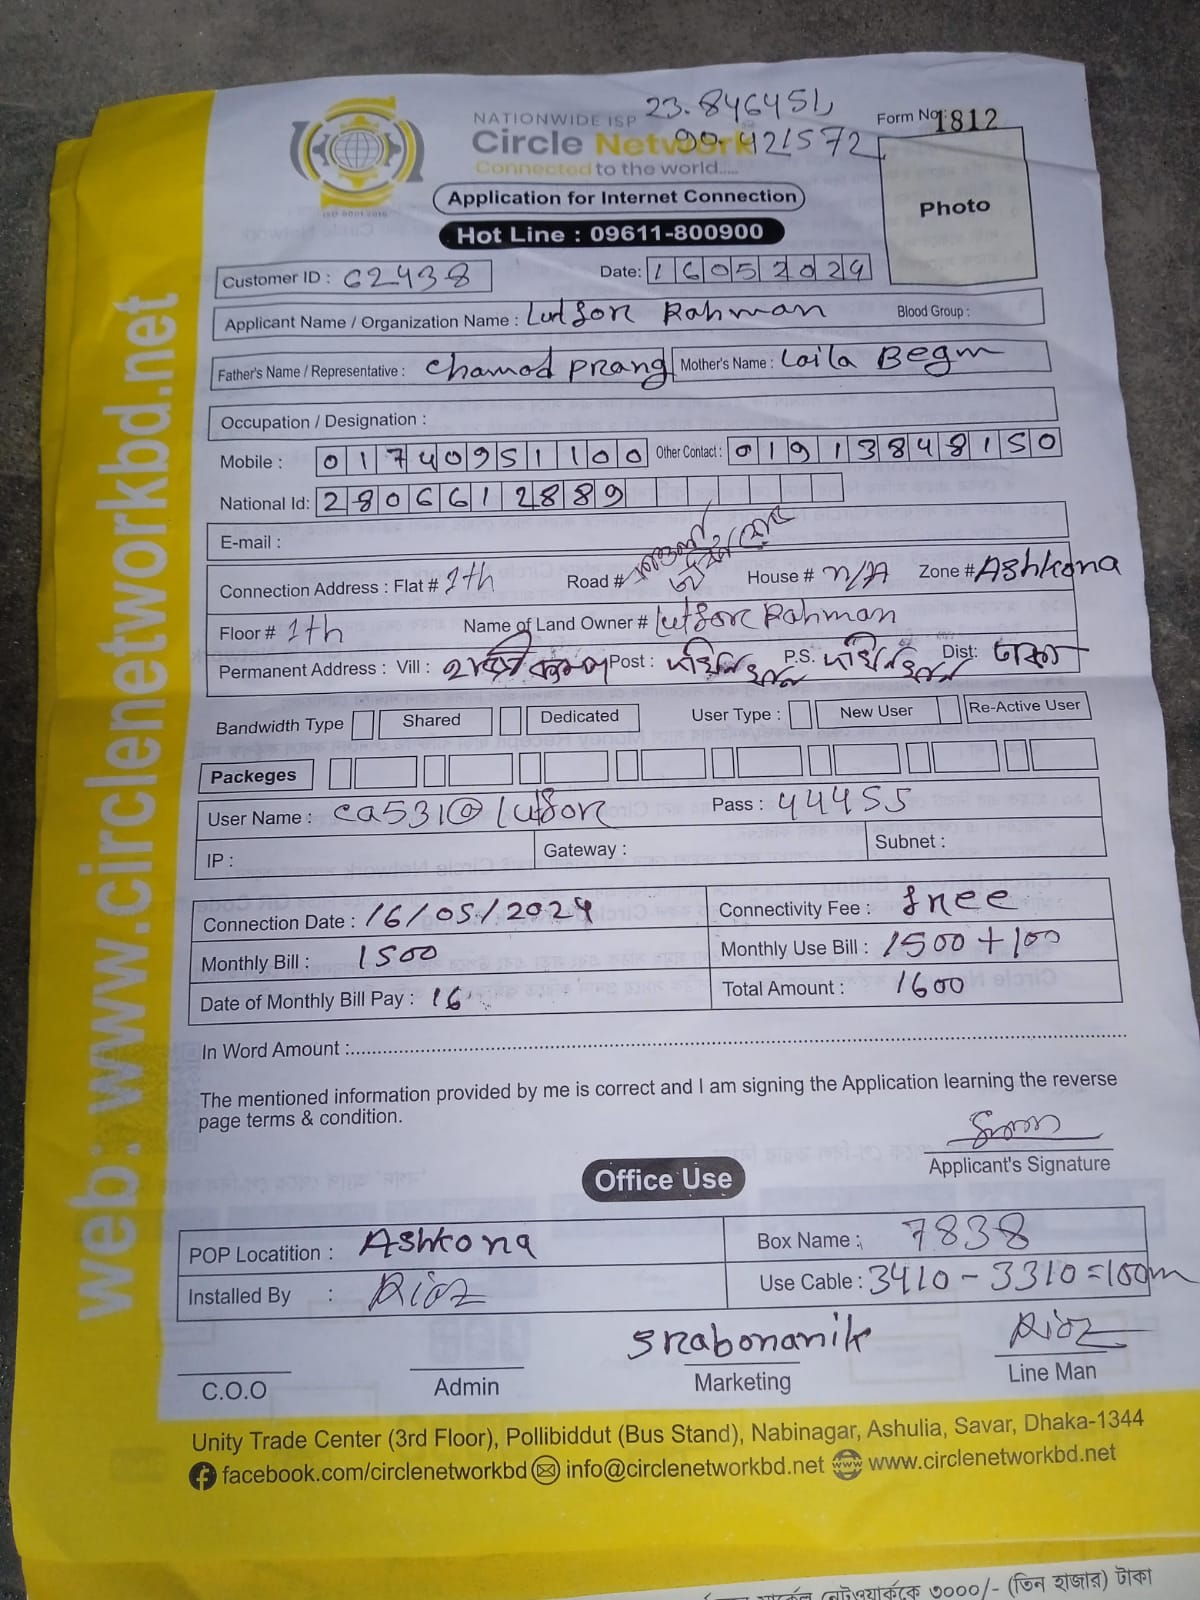 NATIONWIDE ISP 23.846451,
Circle Network 90.421572
Connected to the world.....
Form No: 1812
Application for Internet Connection
Photo
Hot Line : 09611-800900
Customer ID : 62438 Date: 16052024
Applicant Name / Organization Name : Lutfor Rahman Blood Group :
Father's Name / Representative : Chamod Prang Mother's Name : Laila Begm
Occupation / Designation :
Mobile : 01740951100 Other Contact : 01913848150
National Id: 2806612889
E-mail :
Connection Address : Flat # 1th Road # House # N/A Zone # Ashkona
Floor # 1th Name of Land Owner # Lutfor Rahman
Permanent Address : Vill : Post : দক্ষিনখান P.S. দক্ষিনখান Dist: ঢাকা
Bandwidth Type Shared Dedicated User Type : New User Re-Active User
Packeges
User Name : ca531@lutfor Pass : 44455
IP : Gateway : Subnet :
Connection Date : 16/05/2024 Connectivity Fee : free
Monthly Bill : 1500 Monthly Use Bill : 1500+100
Date of Monthly Bill Pay : 16 Total Amount : 1600
In Word Amount :
The mentioned information provided by me is correct and I am signing the Application learning the reverse
page terms & condition.
Applicant's Signature
Office Use
POP Locatition : Ashkona Box Name : 7838
Installed By : Rioz Use Cable : 3410-3310=100m
Srabonanik Rioz
C.O.O Admin Marketing Line Man
Unity Trade Center (3rd Floor), Pollibiddut (Bus Stand), Nabinagar, Ashulia, Savar, Dhaka-1344
facebook.com/circlenetworkbd info@circlenetworkbd.net www.circlenetworkbd.net
web: www.circlenetworkbd.net
৩০০০/- (তিন হাজার) টাকা